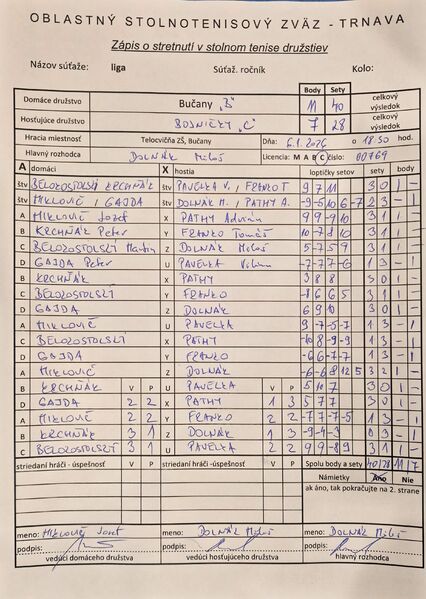 OBLASTNÝ STOLNOTENISOVÝ ZVÄZ - TRNAVA
Zápis o stretnutí v stolnom tenise družstiev
Názov súťaže: liga Súťaž. ročník Kolo:
Body Sety
Domáce družstvo Bučany "B" 11 40 celkový výsledok
Hosťujúce družstvo BOJNIČKY "C" 7 28 celkový výsledok
Hracia miestnosť Telocvičňa ZŠ, Bučany Dňa: 6.1.2026 o 18:30 hod.
Hlavný rozhodca DOLNÁK Miloš Licencia: M A B C číslo: 00769
A domáci X hostia loptičky setov sety body
štv BELOZOSTOLSKÝ KRCHNÁK štv PAVELKA V. / FRANKO T 9 7 11 3 0 1 -
štv MIKLOVIČ / GAJDA štv DOLNÁK M. / PATHY A. -9 -5 10 6 -7 2 3 - 1
A MIKLOVIČ Jozef X PATHY Adrián 9 9 -9 10 3 1 1 -
B KRCHNÁK Peter Y FRANKO Tomáš 10 -7 8 10 3 1 1 -
C BELOZOSTOLSKÝ Martin Z DOLNÁK Miloš 5 -7 5 9 3 1 1 -
D GAJDA Peter U PAVELKA -7 -7 7 -6 1 3 - 1
B KRCHNÁK X PATHY 3 8 8 3 0 1 -
C BELOZOSTOLSKÝ Y FRANKO -8 6 6 5 3 1 1 -
D GAJDA Z DOLNÁK 6 9 10 3 0 1 -
A MIKLOVIČ U PAVELKA 9 -7 -5 -7 1 3 - 1
C BELOZOSTOLSKÝ X PATHY -10 8 -9 -9 1 3 - 1
D GAJDA Y FRANKO -6 6 -7 -7 1 3 - 1
A MIKLOVIČ Z DOLNÁK -6 -6 8 12 5 3 2 1 -
B KRCHNÁK V P U PAVELKA V P 5 10 7 3 0 1 -
D GAJDA 2 2 X PATHY 1 3 5 7 7 3 0 1 -
A MIKLOVIČ 2 2 Y FRANKO 2 2 -7 7 -7 -5 1 3 - 1
B KRCHNÁK 3 1 Z DOLNÁK 1 3 -9 -4 -3 0 3 - 1
C BELOZOSTOLSKÝ 3 1 U PAVELKA 2 2 9 9 -8 9 3 1 1 -
striedaní hráči - úspešnosť V P striedaní hráči - úspešnosť V P Spolu body a sety 40/28 11/7
Námietky Áno Nie
ak áno, tak pokračujte na 2. strane
meno: MIKLOVIČ Jozef meno: DOLNÁK Miloš meno: DOLNÁK Miloš
podpis: podpis: podpis:
vedúci domáceho družstva vedúci hosťujúceho družstva hlavný rozhodca